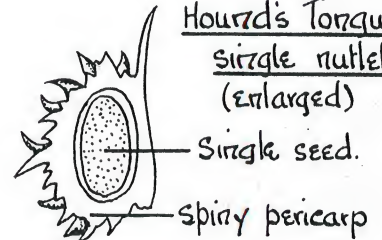 Hound's Tongu
single nutlet
(enlarged)
Single seed.
Spiny pericarp